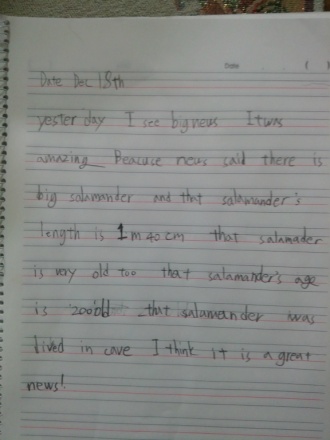 Date
Date Dec 18th
yesterday I see big news It was
amazing Beacuce news said there is
big salamander and that salamander's
length is 1m 40 cm that salamader
is very old too that salamander's age
is 200 old that salamander was
lived in cave I think it is a great
news!